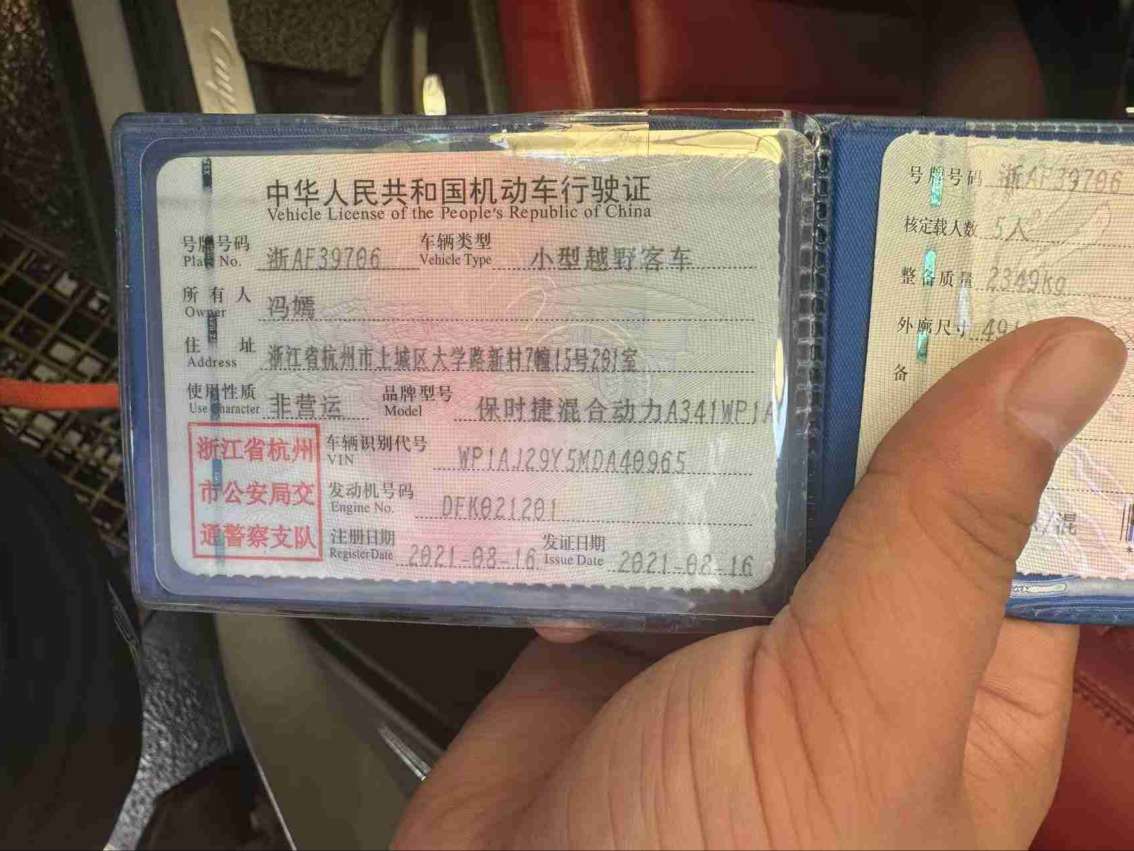 中华人民共和国机动车行驶证
Vehicle License of the People's Republic of China
号牌号码 浙AF39706 车辆类型 小型越野客车
Plate No. Vehicle Type
所有人 冯嫣
Owner
住址 浙江省杭州市上城区大学路新村7幢15号201室
Address
使用性质 非营运 品牌型号 保时捷混合动力A341WP1A
Use Character Model
浙江省杭州
市公安局交
通警察支队
车辆识别代号 WP1AJ29Y5MDA40965
VIN
发动机号码 DFK021201
Engine No.
注册日期 2021-08-16 发证日期 2021-08-16
Register Date Issue Date
号牌号码 浙AF39706
核定载人数 5人
整备质量 2349kg
外廓尺寸 49
备
/混